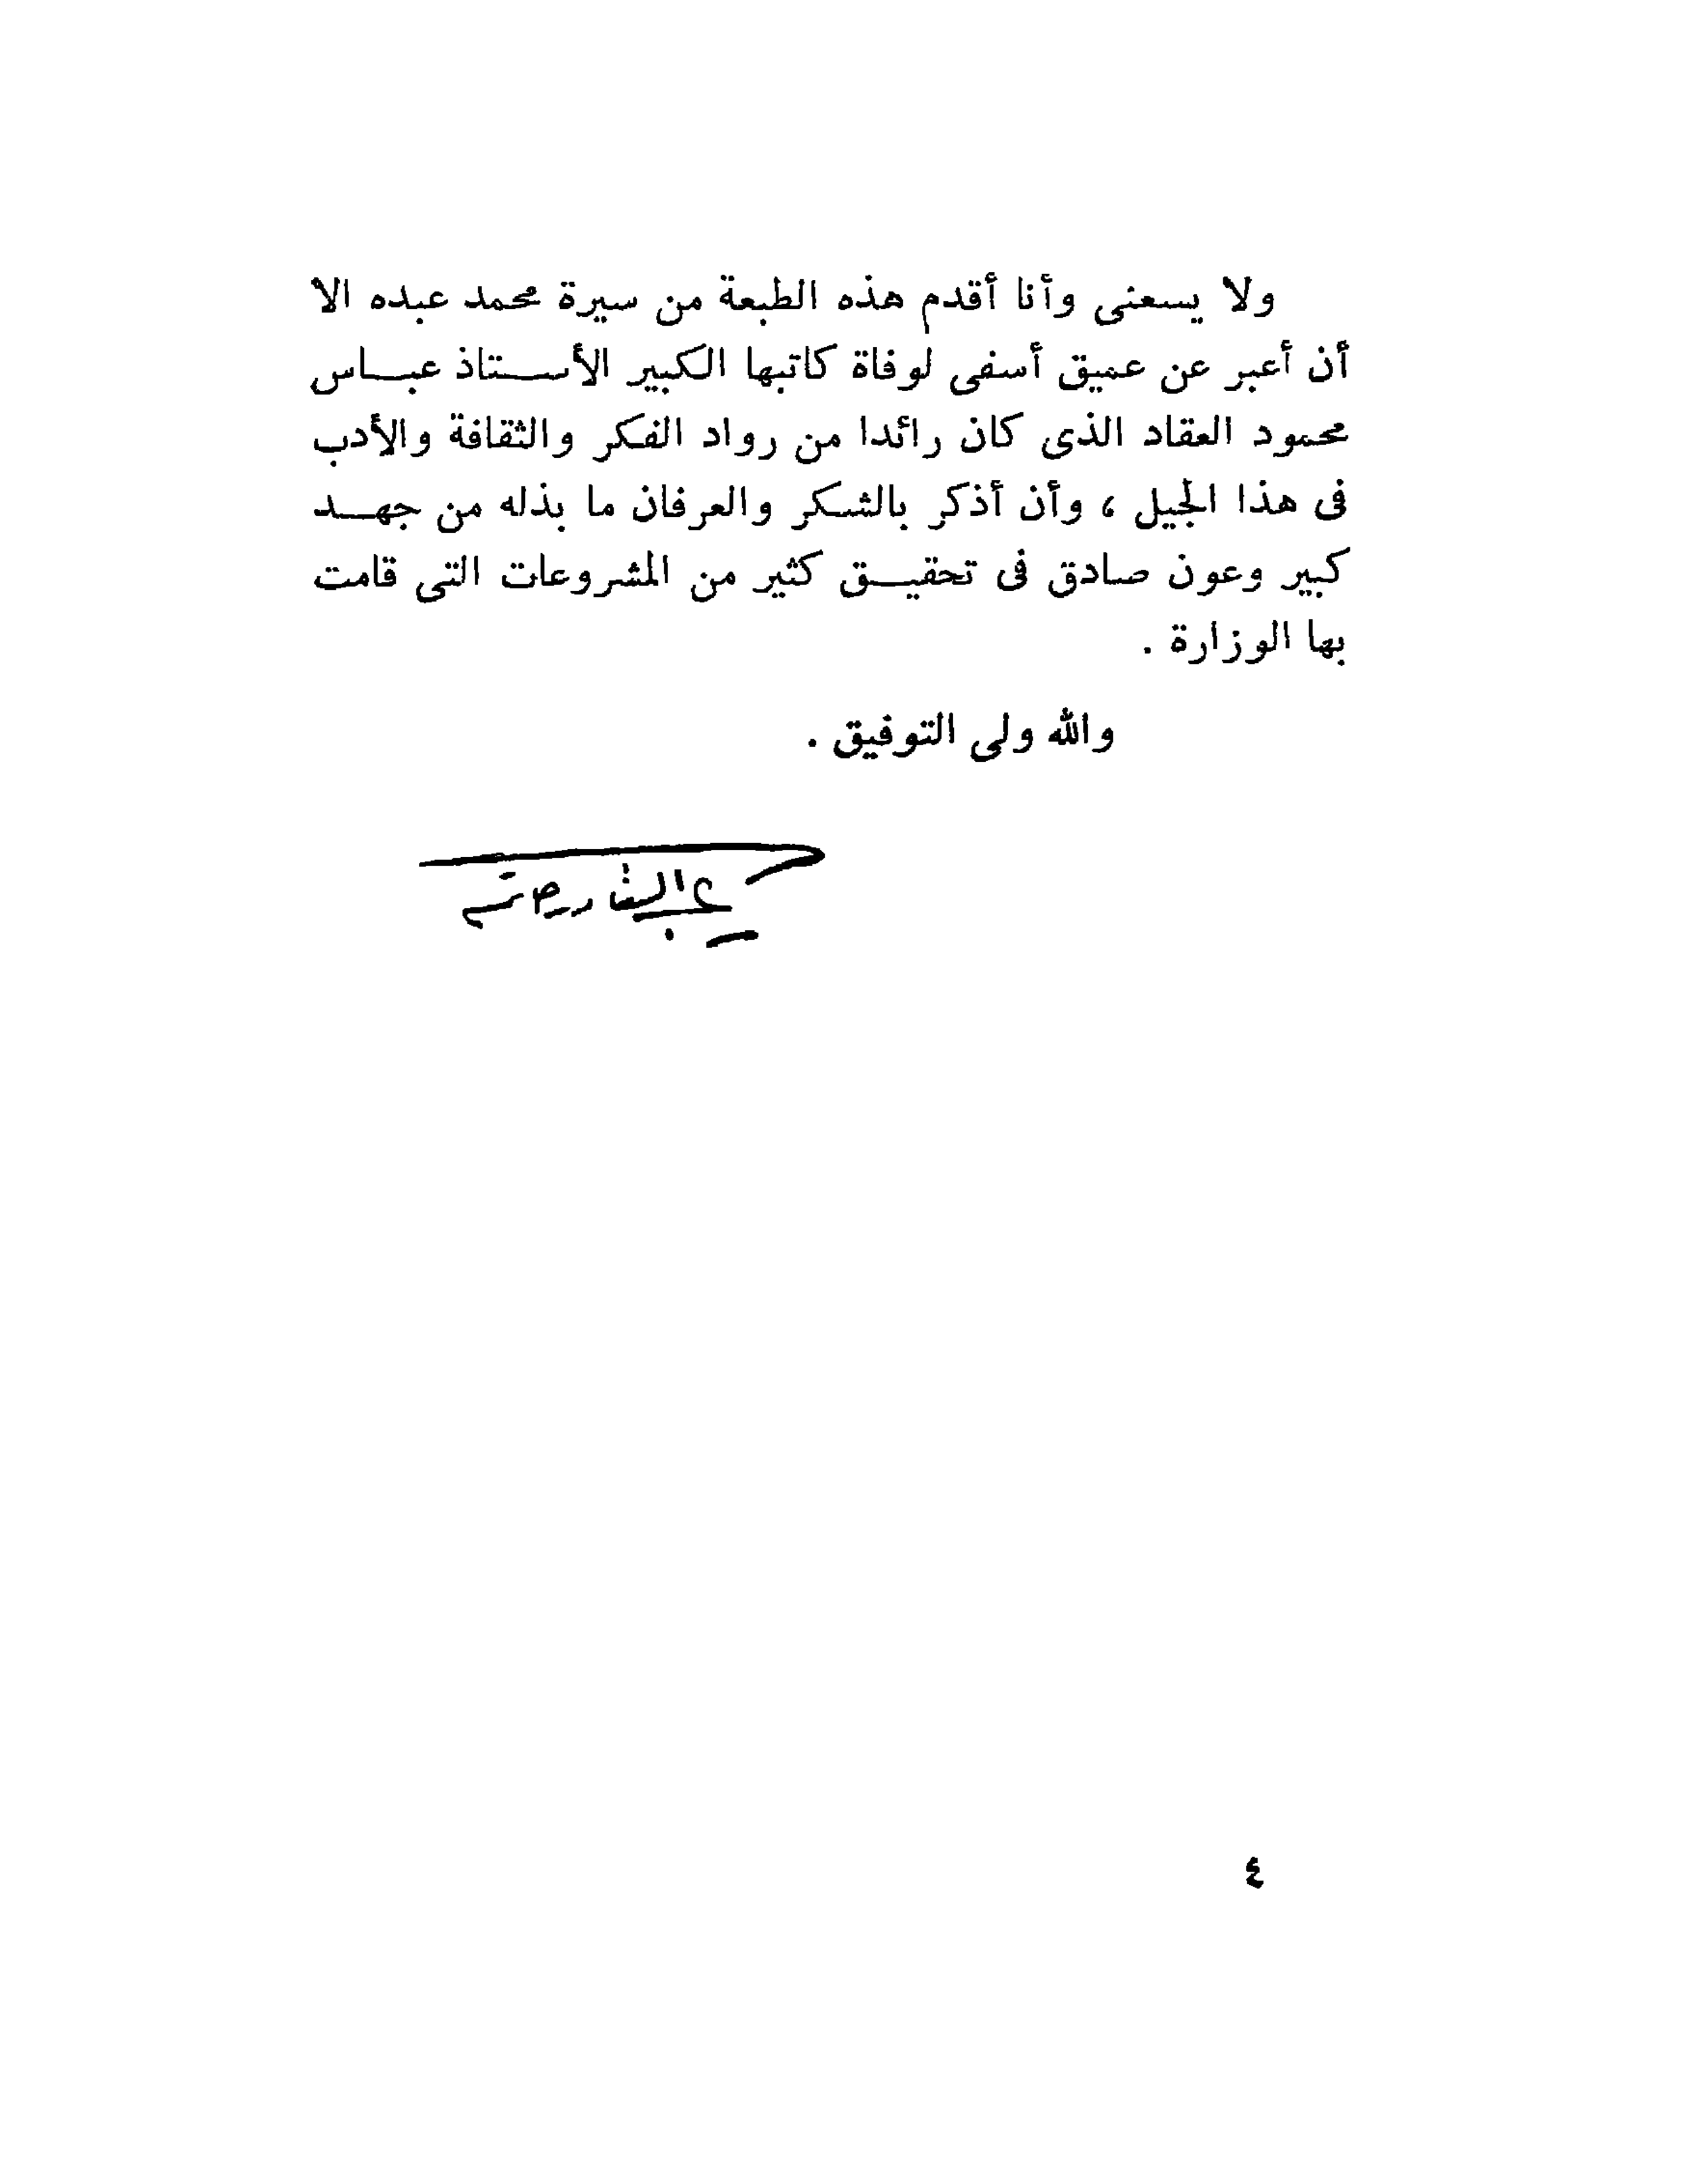 ولا يسعنى وأنا أقدم هذه الطبعة من سيرة محمد عبده الا
أن أعبر عن عميق أسفى لوفاة كاتبها الكبير الأستاذ عباس
محمود العقاد الذى كان رائدا من رواد الفكر والثقافة والأدب
فى هذا الجيل ، وأن أذكر بالشكر والعرفان ما بذله من جهد
كبير وعون صادق فى تحقيق كثير من المشروعات التى قامت
بها الوزارة .
والله ولى التوفيق .
عبد القادر حاتم
٤